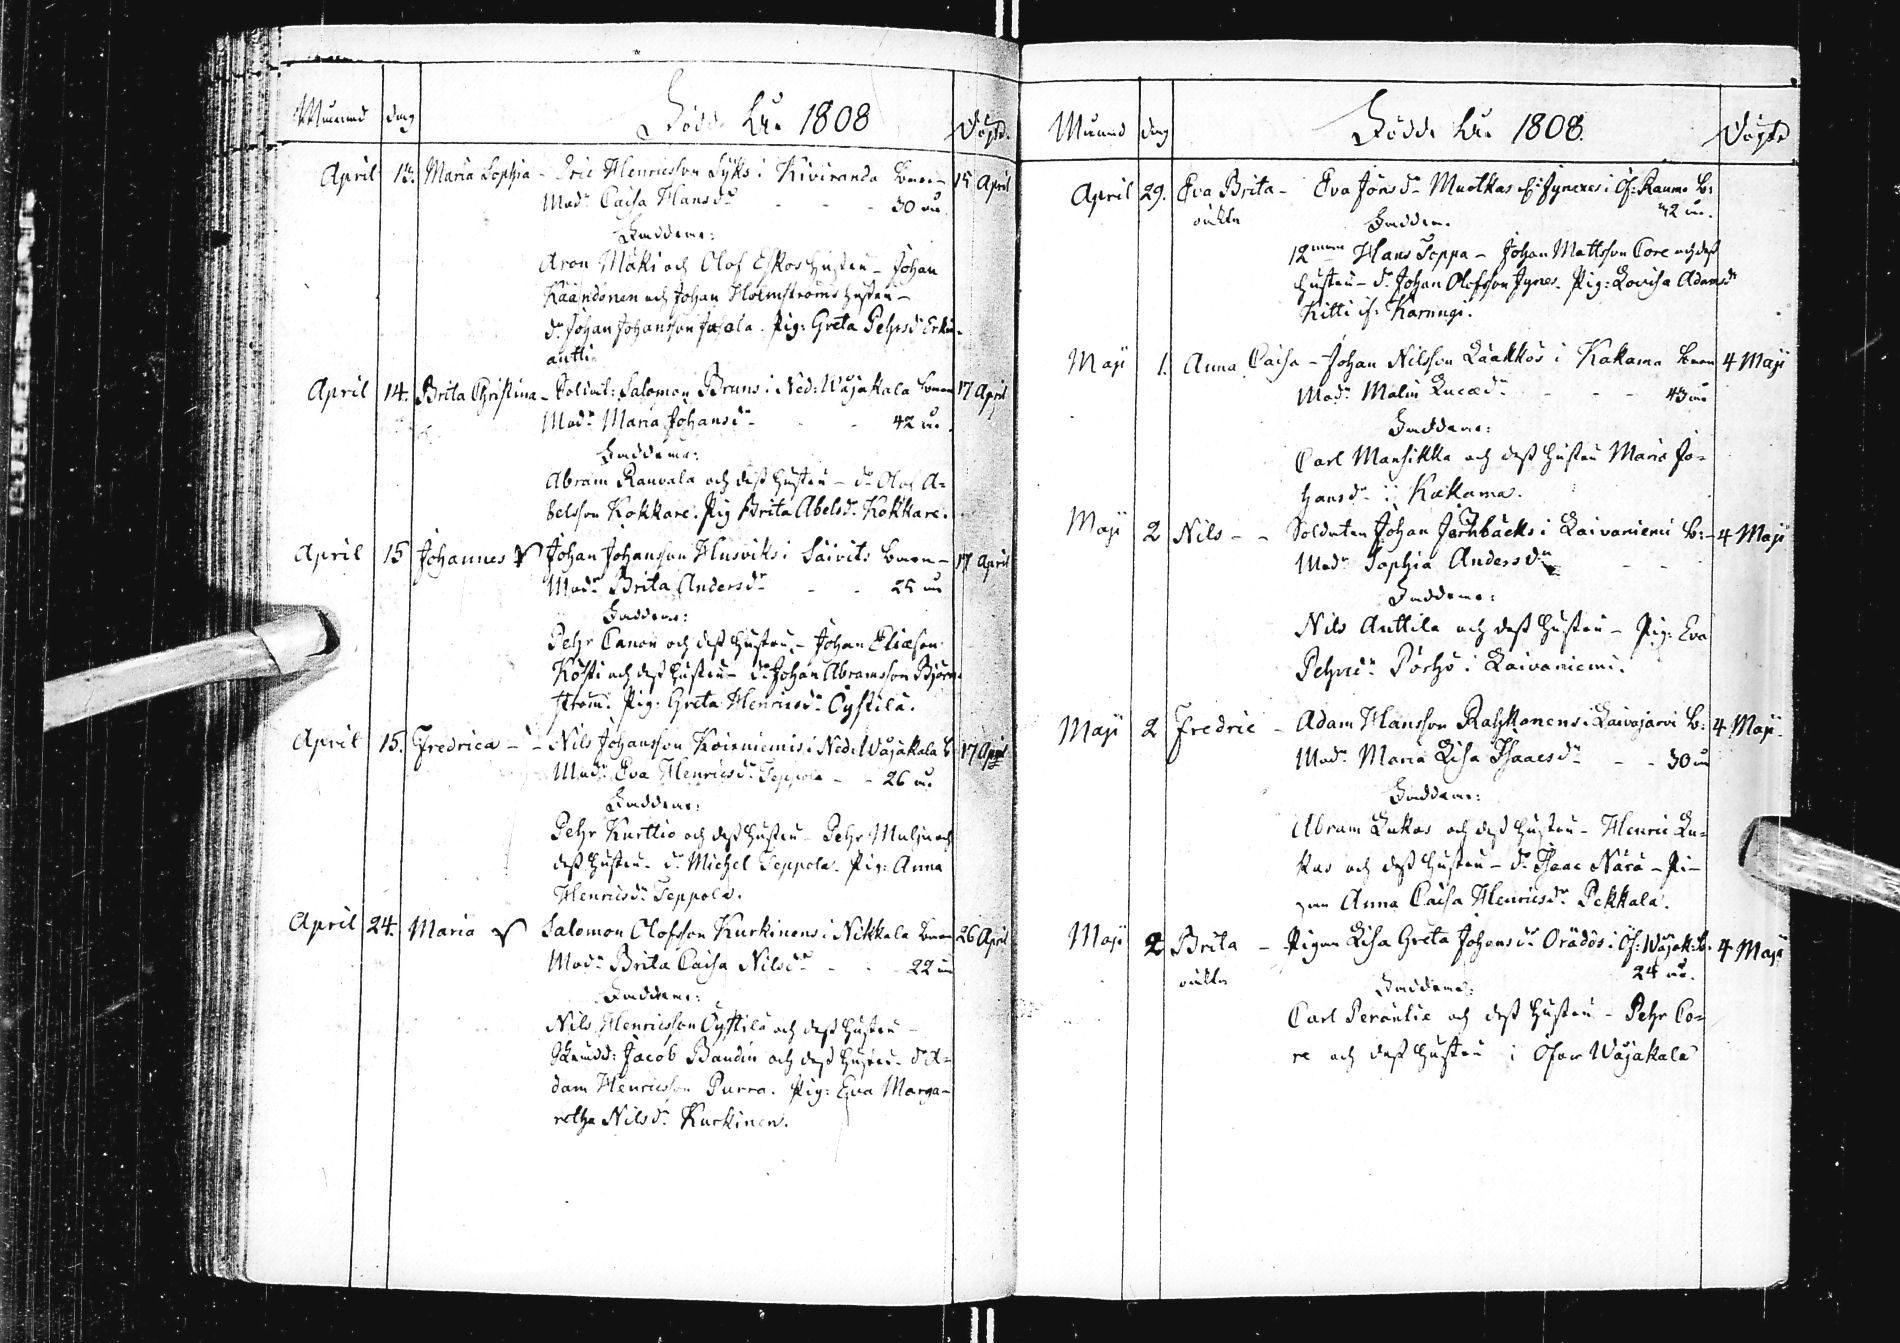 Månad dag Födde År 1808 Döpte
April 13. Maria Sophia - Eric Henricsson Syks i Kiviranda barn - 15 April
Modr Caisa Hansdr - - - 30 år.
Faddrar:
Aron Mäki och Olof Eskos hustru - Johan
Käändonen och Johan Holmströms hustru -
dr Johan Johansson Jasala. Pig: Greta Pehrsdr Erki-
antti.
April 14. Brita Christina - Soldat: Salomon Bruns i Ned: Wojakala barn 17 April
Modr Maria Johansdr - - 42 år.
Faddrar:
Abram Rauvala och dess hustru - dr Olof A-
belsson Kokkare. Pig Brita Abelsdr Kokkare.
April 15 Johannes Johan Johansson Husviks i Säivits barn - 17 April
Modr Brita Andersdr - - 25 år
Faddrar:
Pehr Canon och dess hustru - Johan Eliæson
Koski och dess hustru - dr Johan Abramsson Björn-
ström. Pig: Greta Henricsdr Öystilä.
April 15. Fredrica - - Nils Johansson Koivuniemis i Ned: Wojakala b: 17 April
Modr Eva Henricsdr Seppola - - 26 år
Faddrar:
Pehr Kurttio och dess hustru - Pehr Muljo och
dess hustru - dr Michel Seppola. Pig: Anna
Henricsdr Seppola.
April 24. Maria Salomon Olofsson Kurkinens i Nikkala barn 26 April
Modr Brita Caisa Nilsdr - - 22 år
Faddrar:
Nils Henricsson Öystilä och dess hustru -
Jacob Baudin och dess hustru - dr A-
dam Henricsson Purra. Pig: Eva Marga-
retha Nilsdr Kurkinen.
Månad dag Födde År 1808. Döpte
April 29. Eva Brita - Eva Jönsdr Muotkas i Öf: Raumo b:
oäkta 42 år.
Faddrar
Hans Toppa - Johan Mattsson Core och dess
hustru - dr Johan Olofsson Jynes. Pig: Lovisa Adamsdr
Kitti if: Karungi.
Maji 1. Anna Caisa - Johan Nilsson Lääkkös i Kakama barn 4 Maji
Modr Malin Lucædr - - - 43 år
Faddrar:
Carl Mansikka och dess hustru Maria Jo-
hansdr i Kakama.
Maji 2 Nils - - Soldaten Johan Jernbäcks i Laivaniemi b: - 4 Maji
Modr Sophia Andersdr - -
Faddrar:
Nils Anttila och dess hustru - Pig: Eva
Pehrsdr Pörhö i Laivaniemi.
Maji 2 Fredric - Adam Hansson Rahkonens i Laivajärvi b: 4 Maji.
Modr Maria Lisa Isaacsdr - - 30 år
Faddrar:
Abram Lukas och dess hustru - Henric Lu-
kas och dess hustru - dr Isaac Närä - Pi-
gan Anna Caisa Henricsdr Pekkala.
Maji 2 Brita - Pigan Lisa Greta Johansdr Orädös i Öf: Wojak: b. 4 Maji
oäkta 24 år.
Faddrar:
Carl Peräntie och dess hustru - Pehr Co-
re och dess hustru i Öfver Wojakala